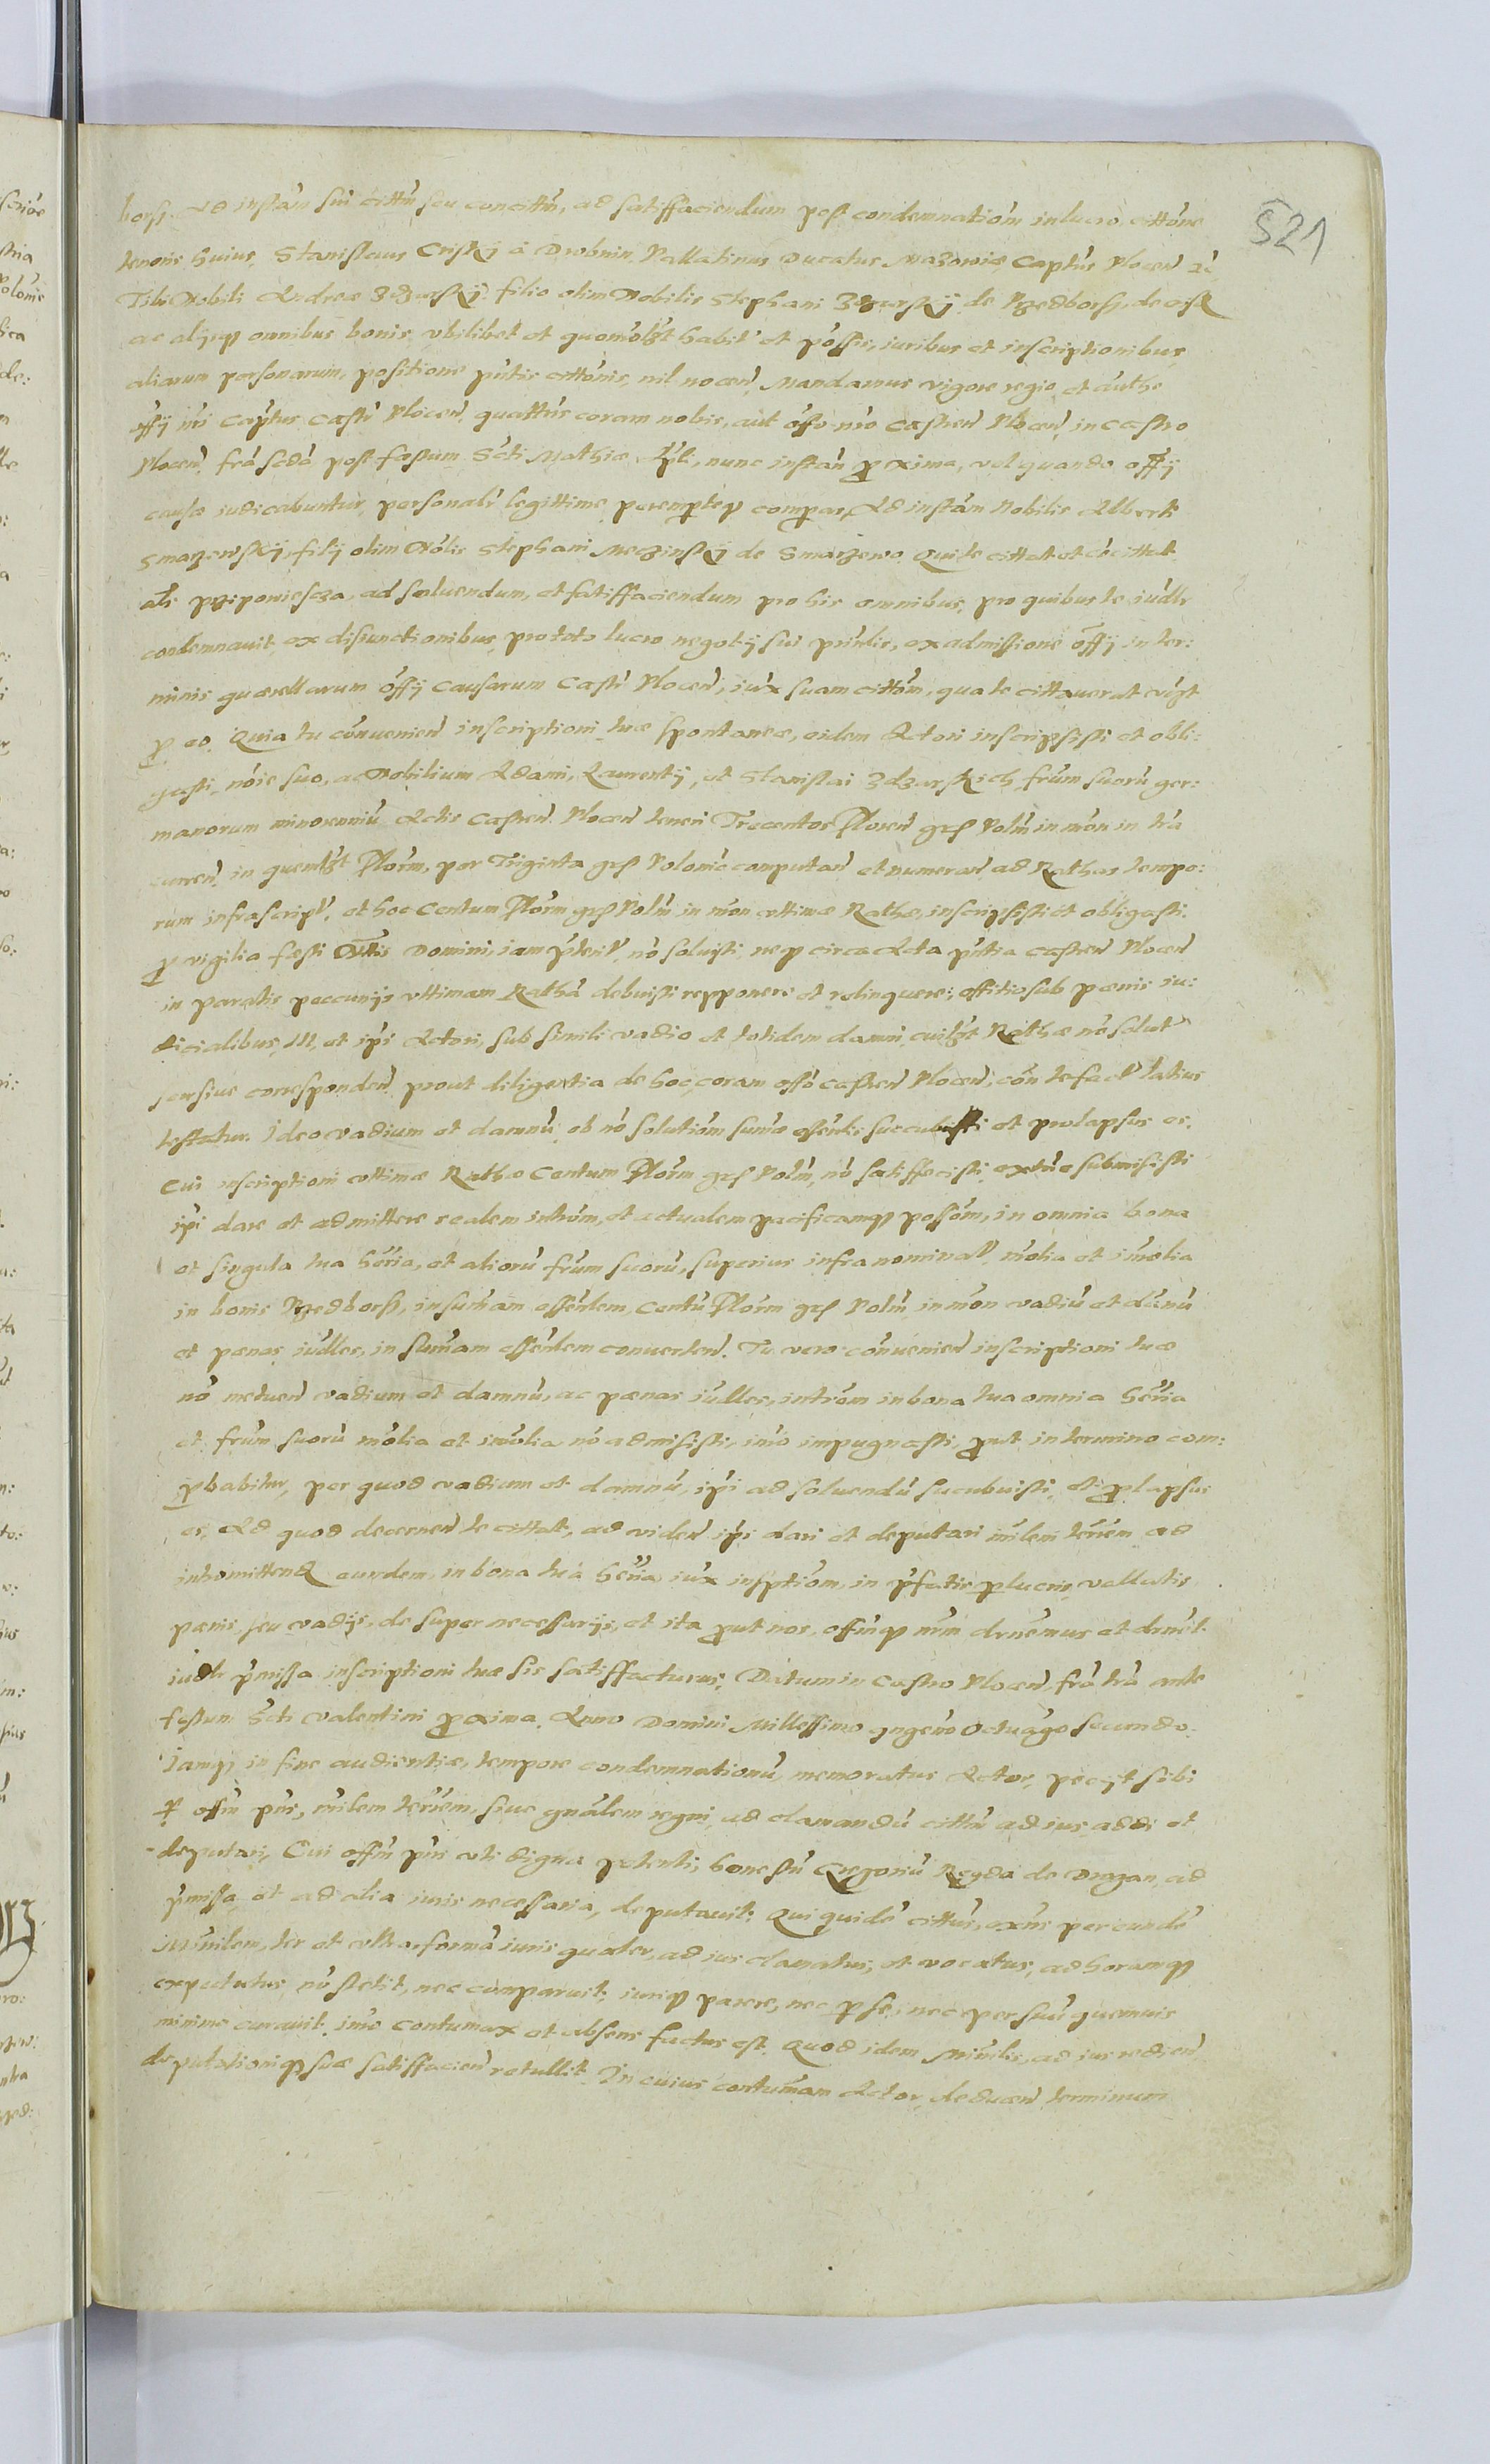 521
borsz. Ad instãm sui cittñi seu concittñi, ad satisffaciendum post condemnatioñ in lucro cittõne
tenoris huius. Stanislaus Crisky à Drobnin Pallatinus Ducatus Mazowiæ Captũs Plocen̄ zc
Tibi Nobili Andreæ Zdzarsky filio olim Nobilis Stephani Zdzarsky de Rzedborsz, de eisd
ac alijsq omnibus bonis vbilibet et quomõlbt habit et posses, iuribus et inscriptionibus
aliarum personarum, positione pñtis cittõnis, nil nocen̄ Mandamus vigore regio, et authe
offij nri Captus Castri Plocen̄ quattũs coram nobis, aut offo nrõ Castren̄ Plocen̄ in Castro
Plocen̄ frã scdã post festum Scti Mathiæ Apli, nunc instañ proxima, vel quando offij
causæ iudicabuntur, personalr legittime perempteq compar, Ad instãm Nobilis Alberti
Smarzewskij, filij olim Nõlis Stephani Meczinskij de Smarzewo Qui te cittat et cõcittat
als przipowiescza, ad soluendum, et satisffaciendum pro his omnibus, pro quibus te iudlr
condemnauit, ex disiunctionibus, pro toto lucro negotij sui prinlis, ex admissione offij in ter:
minis quærellarum offij Causarum Castri Plocen̄, iux suam cittõm, qua te cittauerat vigt
p eo. Quia tu conuenien̄ inscriptioni tuæ spontaneæ, eidem Actori inscripsisti et obli:
gasti, nõie suo, ac Nobilium Adami, Laurentij, et Stanislai Zdzarskich frũm suorũ ger:
manorum minorenniũ Actis Castren̄ Plocen̄ teneri Trecentos Floren̄ grs Polm in mon in trã
curren̄, in quemlbt Florm, per Triginta grs Polonic computañ et numerañ ad Rathas tempo:
rum infrascript, et hoc Centum Florm grs Polm in mon vltimæ Rathæ, inscripsisti et obligasti.
p vigilia festi Domini, iam pterit, nõ soluisti, neq circa Acta pñtia Castren̄ Plocen̄
in paratis peccunijs vltimam Rathã debuisti repponere et relinquere; offitio sub pænis iu:
dicialibus, III, et ipi Actori, sub simili vadio et totidem damni, cuilbt Rathæ nõ solut
sensius corresponden̄ prout diligentia de hoc, coram offo Castren̄ Plocen̄, con te fact latius
testatur. Ideo vadium et damnũ, ob nõ solutiõm sumæ assentis succubuisti et prolapsus es.
Cui inscriptioni vltimæ Rathæ Centum Florm grs Polm, nõ satisffecisti, extunc submisisti
ipi dare et admittere realem intrõm, et actualem pacificamq possõm, in omnia bona
et singula tua hæria, et aliorũ frũm suorũ, superius infra nominat, mõlia et imõlia
in bonis Rzedborsz, in sumam assentem, Centũ Florm grs Polm in mon vadiũ et damnũ
et pænas iudles, in sumam assentem conuerten̄. Tu vero conuenien̄ inscriptioni tuæ
nõ metuen̄ vadium et damnũ, ac pænas iudles, intrõm in bona tua omnia hæria
et frũm suorũ mõlia et imõlia nõ admisisti, imo impugnasti, prout in termino com:
probabitur, per quod vadium et damnũ, ipi ad soluendũ sucubuisti, et prolapsus
es. Ad quod decernen̄ te cittat, ad viden̄ ipi dari et deputari milem terrem ad
intromittend eundem, in bona tua hæria iux insptiõm, in pfatis perlucris vallatis
pænis, seu vadijs, de super necessarijs, et ita prout nos, offmq nrm decrnemus et decrnet
iudlr pmissa inscriptioni tuæ sis satisffacturus. Datum in Castro Plocen̄ frã trã ante
festum Scti Valentini proxima. Anno Domini Millessimo qngeno Octuago secundo.
Iamq in fine audientiæ, tempore condemnationũ memoratus Actor, pecyt sibi
p offm pñs, milem terrem, siue gnãlem regni, ad clamandũ cittm ad ius, addi et
deputari, Cui offm pñs vti digna petenti; honestũ Gregoriũ Reyda de Drozan, ad
pmissa, et ad alia iuris necessaria, deputauit: Qui quidẽ cittus, exñs per eundẽ
Minilem, ter et vltra formã iuris quater, ad ius clamatus, et vocatus, ad horamq
expectatus, nõ stetit, nec comparuit, iuriq parere, nec p se, nec per suũ quemuis
minime curauit, imo contumax et absens factus est. Quod idem Minilis, ad ius redien̄
deputationiq suæ satisffacien̄ retullit. In cuius contumam Actor, deducen̄ terminum